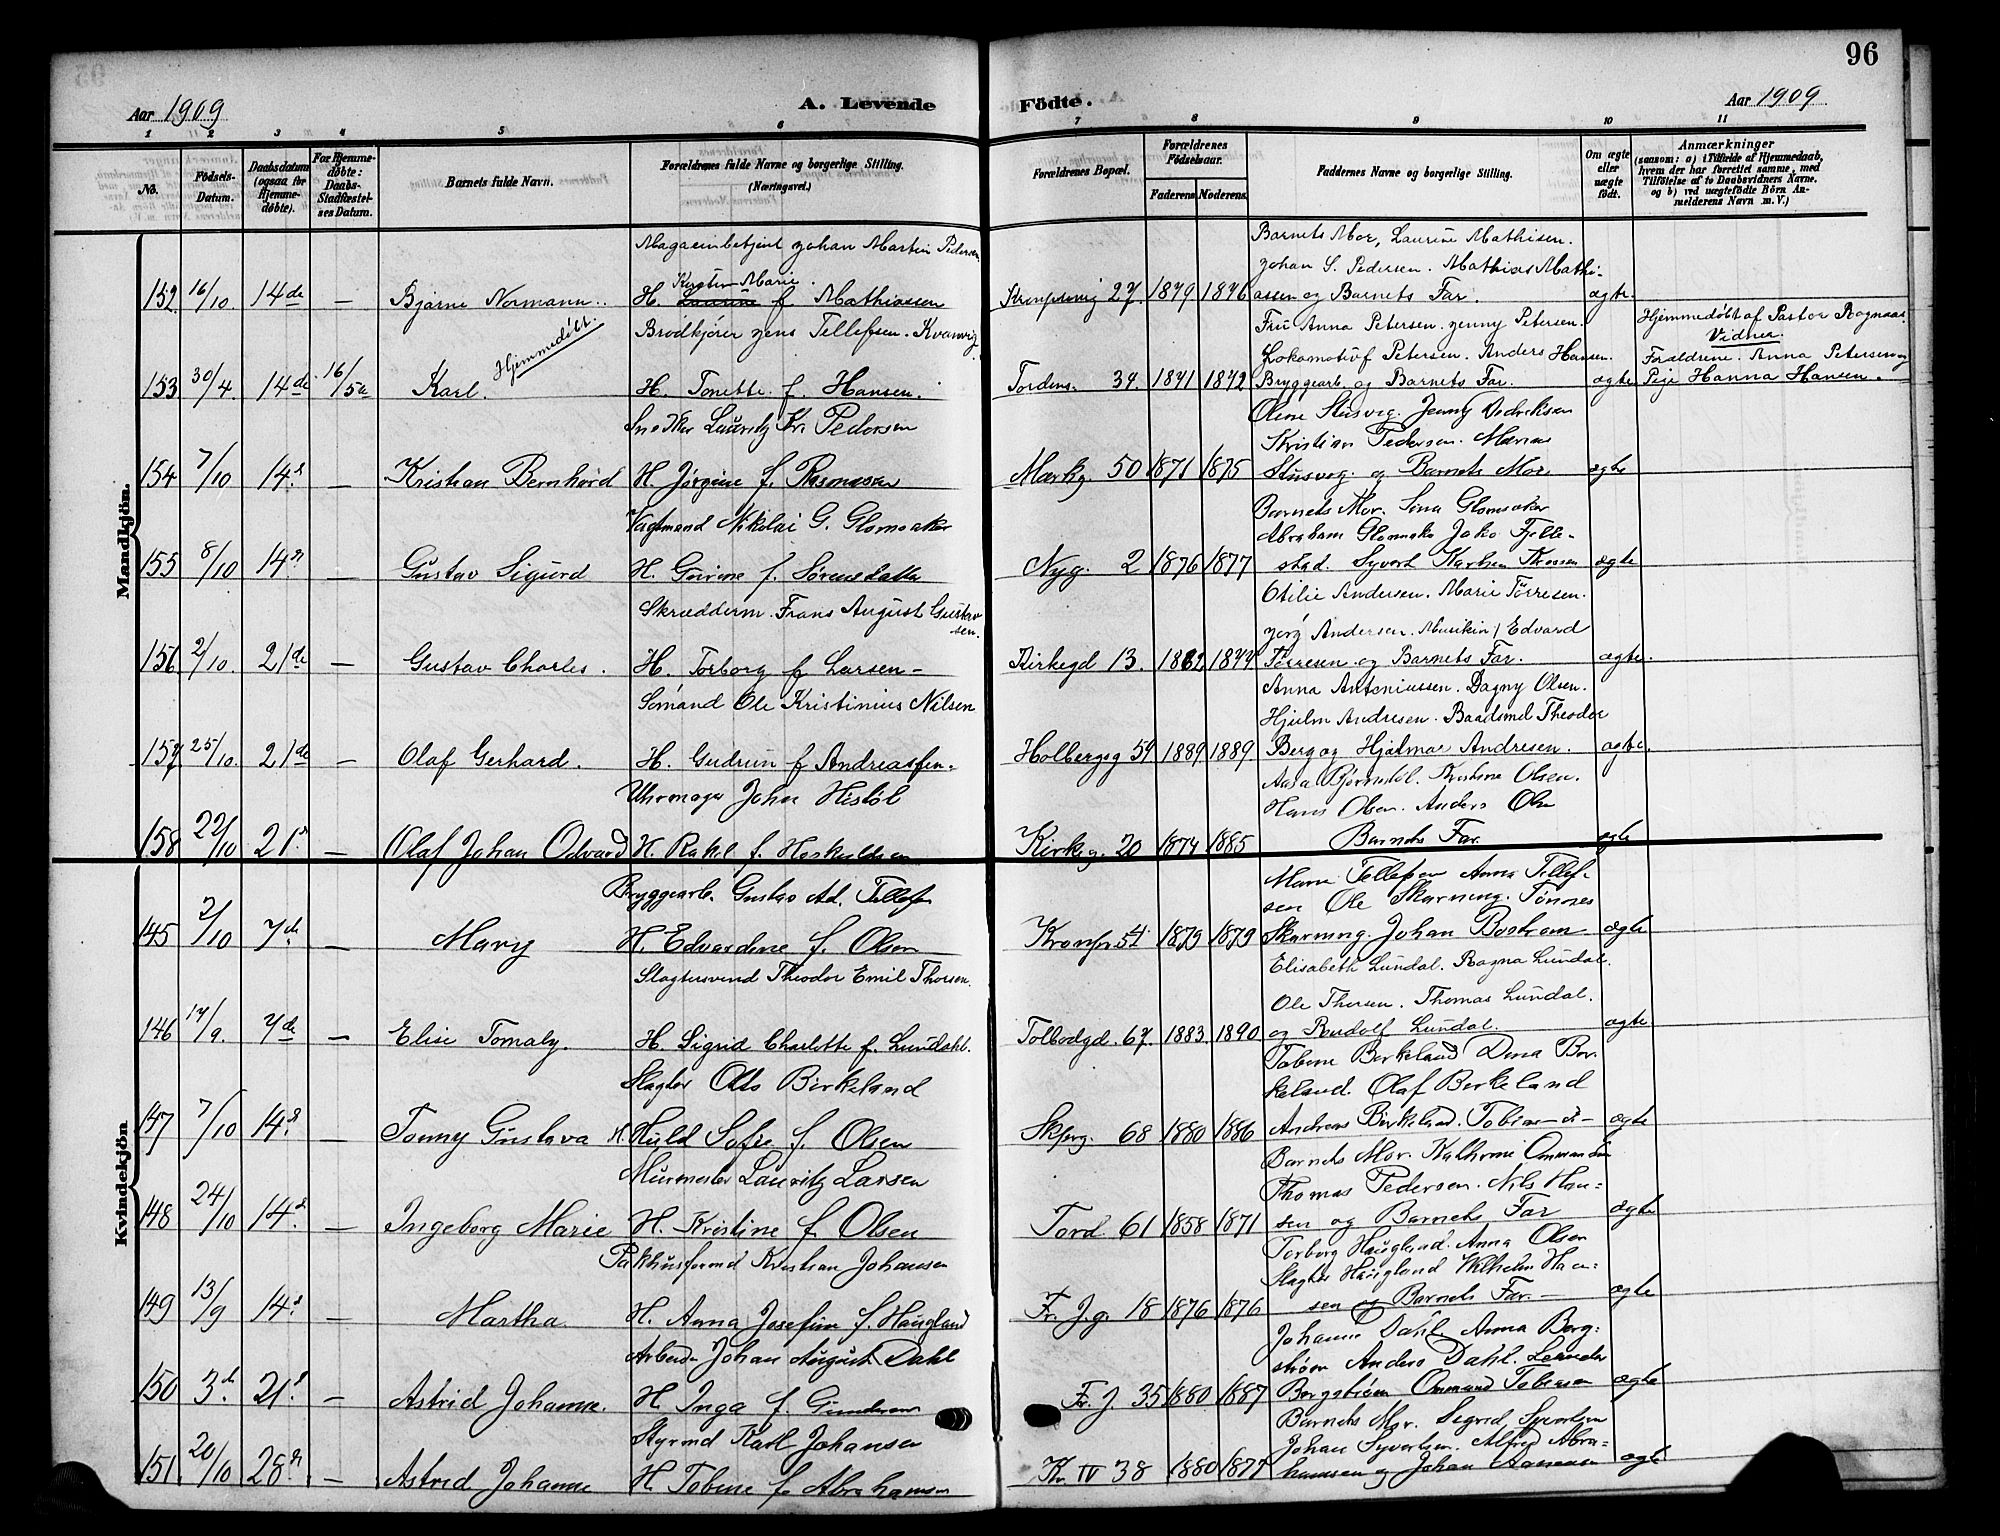 96
Aar 1909
A. Levende
Födte.
Aar 1909
1 2 3 4 5 6 7 8 9 10 11
No.
Födsels-
Datum.
Daabsdatum
(ogsaa for
Hjemme-
døbte).
For Hjemme-
døbte:
Daabs-
Stadfæstel-
ses Datum.
Barnets fulde Navn.
Forældrenes fulde Navne og borgerlige Stilling.
(Næringsvei.)
Forældrenes Bopæl.
Forældrenes
Födselsaar.
Faderens. Moderens.
Faddernes Navne og borgerlige Stilling.
Om ægte
eller
uægte
födt.
Anmærkninger
(saasom: a) i Tilfælde af Hjemmedaab,
hvem der har forrettet samme, med
Tilföielse af to Daabsvidners Navne,
og b) ved uægtefödte Börn An-
melderens Navn m. V.)
Mandkjön.
Magasinbetjent Johan Martin Pedersen
Kirsten Marie.
152 16/10 14de — Bjarne Normann. H. Laurine f Mathiassen
Kronprinsg 27. 1879 1876
Barnets Mor, Laurine Mathisen.
Johan S. Pedersen. Mathias Mathi-
assen og Barnets Far. ægte.
Brödkjörer Jens Tellefsen. Kvamvig
153 30/4 14de 16/5 Karl. Hjemmedöbt. H. Tonette f. Hansen.
Tordens. 37. 1871 1872
Fru Anna Petersen. Jenny Petersen.
Lokomotivf Petersen. Anders Hansen.
Bryggearb. og Barnets Far. ægte
Hjemmedöbt af Pastor Rognaas.
Vidner
Forældrene. Anna Petersen og
Pige Hanna Hansen.
Snekker Lauritz Kr. Pedersen
154 7/10 14. — Kristian Bernhard H. Jörgine f. Rasmussen
Markg. 50 1871 1875
Oline Stusvig. Jenny Dedriksen
Kristian Pedersen. Marius
Stusvig. og Barnets Mor. ægte
Vagtmand Nikolai G. Glomsaker
155 8/10 14. — Gustav Sigurd H. Gurine f. Sörensdatter
Nyg. 2 1876 1877
Barnets Mor. Sina Glomsaker
Abraham Glomsaker Fjelle-
stad. Syvert ægte
Skrædderm. Frans August Gustav
sen.
156 2/10. 21de — Gustav Charles. H. Torborg f Larsen —
Kirkegd 13. 1862 1877
Otilie Andersen. Marie Törresen.
Jörg Andersen. Musikin/ Edvard
Törresen. og Barnets Far. ægte.
Sömand Ole Kristinius Nilsen
157 25/10. 21de — Olaf Gerhard. H. Gudrun f Andreassen.
Holbergsg 59 1889 1889
Anna Antoniussen. Dagny Olsen.
Hjulm Andresen. Baadsmd Theodor
Berg og Hjalmar Andresen. ægte.
Uhrmager Johan Hestöl
158 22/10 21. — Olaf Johan Odvard H. Rakel f.
Kirkeg. 20 1874 1885
Kristine Olsen.
Hans Olsen. Anders Olsen
Barnets Far. ægte
Kvindekjön
Bryggearb. Gustav Ad. Tellefsen
145 2/10 7de — Mary H. Edvardine f. Olsen
Kronpr 54 1879 1879
Marie Tellefsen Anna Tellef-
sen Ole Skarning. Tönnes
Skarning. Johan Bostrøm ægte
Slagtersvend Theodor Emil Thorsen.
146 17/9. 7de — Elise Tomaly. H. Sigrid Charlotte f. Lundahl.
Tolbodgd. 67. 1883 1890
Elisabeth Lundal. Ragna Lundal.
Ole Thorsen. Thomas Lundal.
og Rudolf Lundal. ægte
Slagter Otto Birkeland
147 7/10 14. — Tonny Gustava H. Huld Sofie f. Olsen
Skjerg. 68 1880 1886
Tobine Birkeland Dina Bir-
keland. Olaf Birkeland
Andreas Birkeland. Tobias —"— ægte
Murmester Lauritz Larsen
148 24/10 14. — Ingeborg Marie H. Kristine f Olsen
Tord. 61 1858 1871
Barnets Mor. Kathrine Ommundsen
Thomas Pedersen. Nils Han-
sen og Barnets Far ægte
Pakhusformd Kristian Johansen
149 13/9 14. — Martha. H. Anna Josefine f. Haugland
Fr. J. g. 18 1876 1876
Torborg Haugland. Anna Olsen
Slagter Haugland Wilhelm Han-
sen og Barnets Far. — ægte
Arbeider Johan August Dahl
150 3. 21. — Astrid Johanne. H. Inga f. Gundersen
Fr. J. 35 1880 1887
Johanne Dahl. Anna Berg-
ström Anders Dahl.
Bergström Ommund Tobiasen ægte
Styrmd Karl Johansen
151 20/10 28. — Astrid Johanne H. Tobine f. Abrahamsen
Kr. IV 38 1880 1877
Barnets Mor. Sigrid Syvertsen
Johan Syvertsen. Alfred Abra-
hamsen og Johan ægte